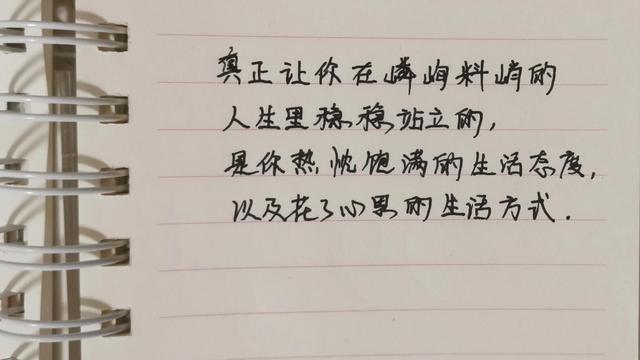 真正让你在嶙峋料峭的
人生里稳稳站立的，
是你热忱饱满的生活态度，
以及花了心思的生活方式.